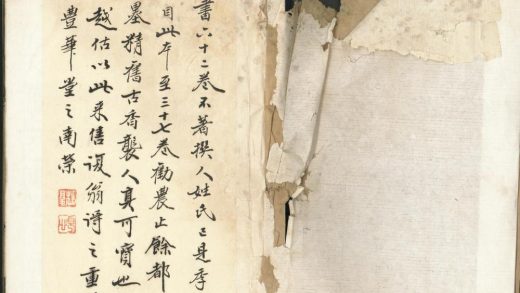 書六十二卷不著撰人姓氏已見季
目此本至三十七卷勸農止餘都
墨精舊古香襲人真可寶也
越估以此来售復翁得之重
豐華堂之南榮